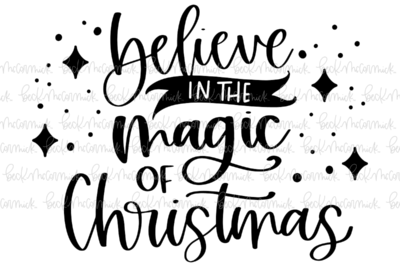 believe
IN THE
magic
OF
Christmas